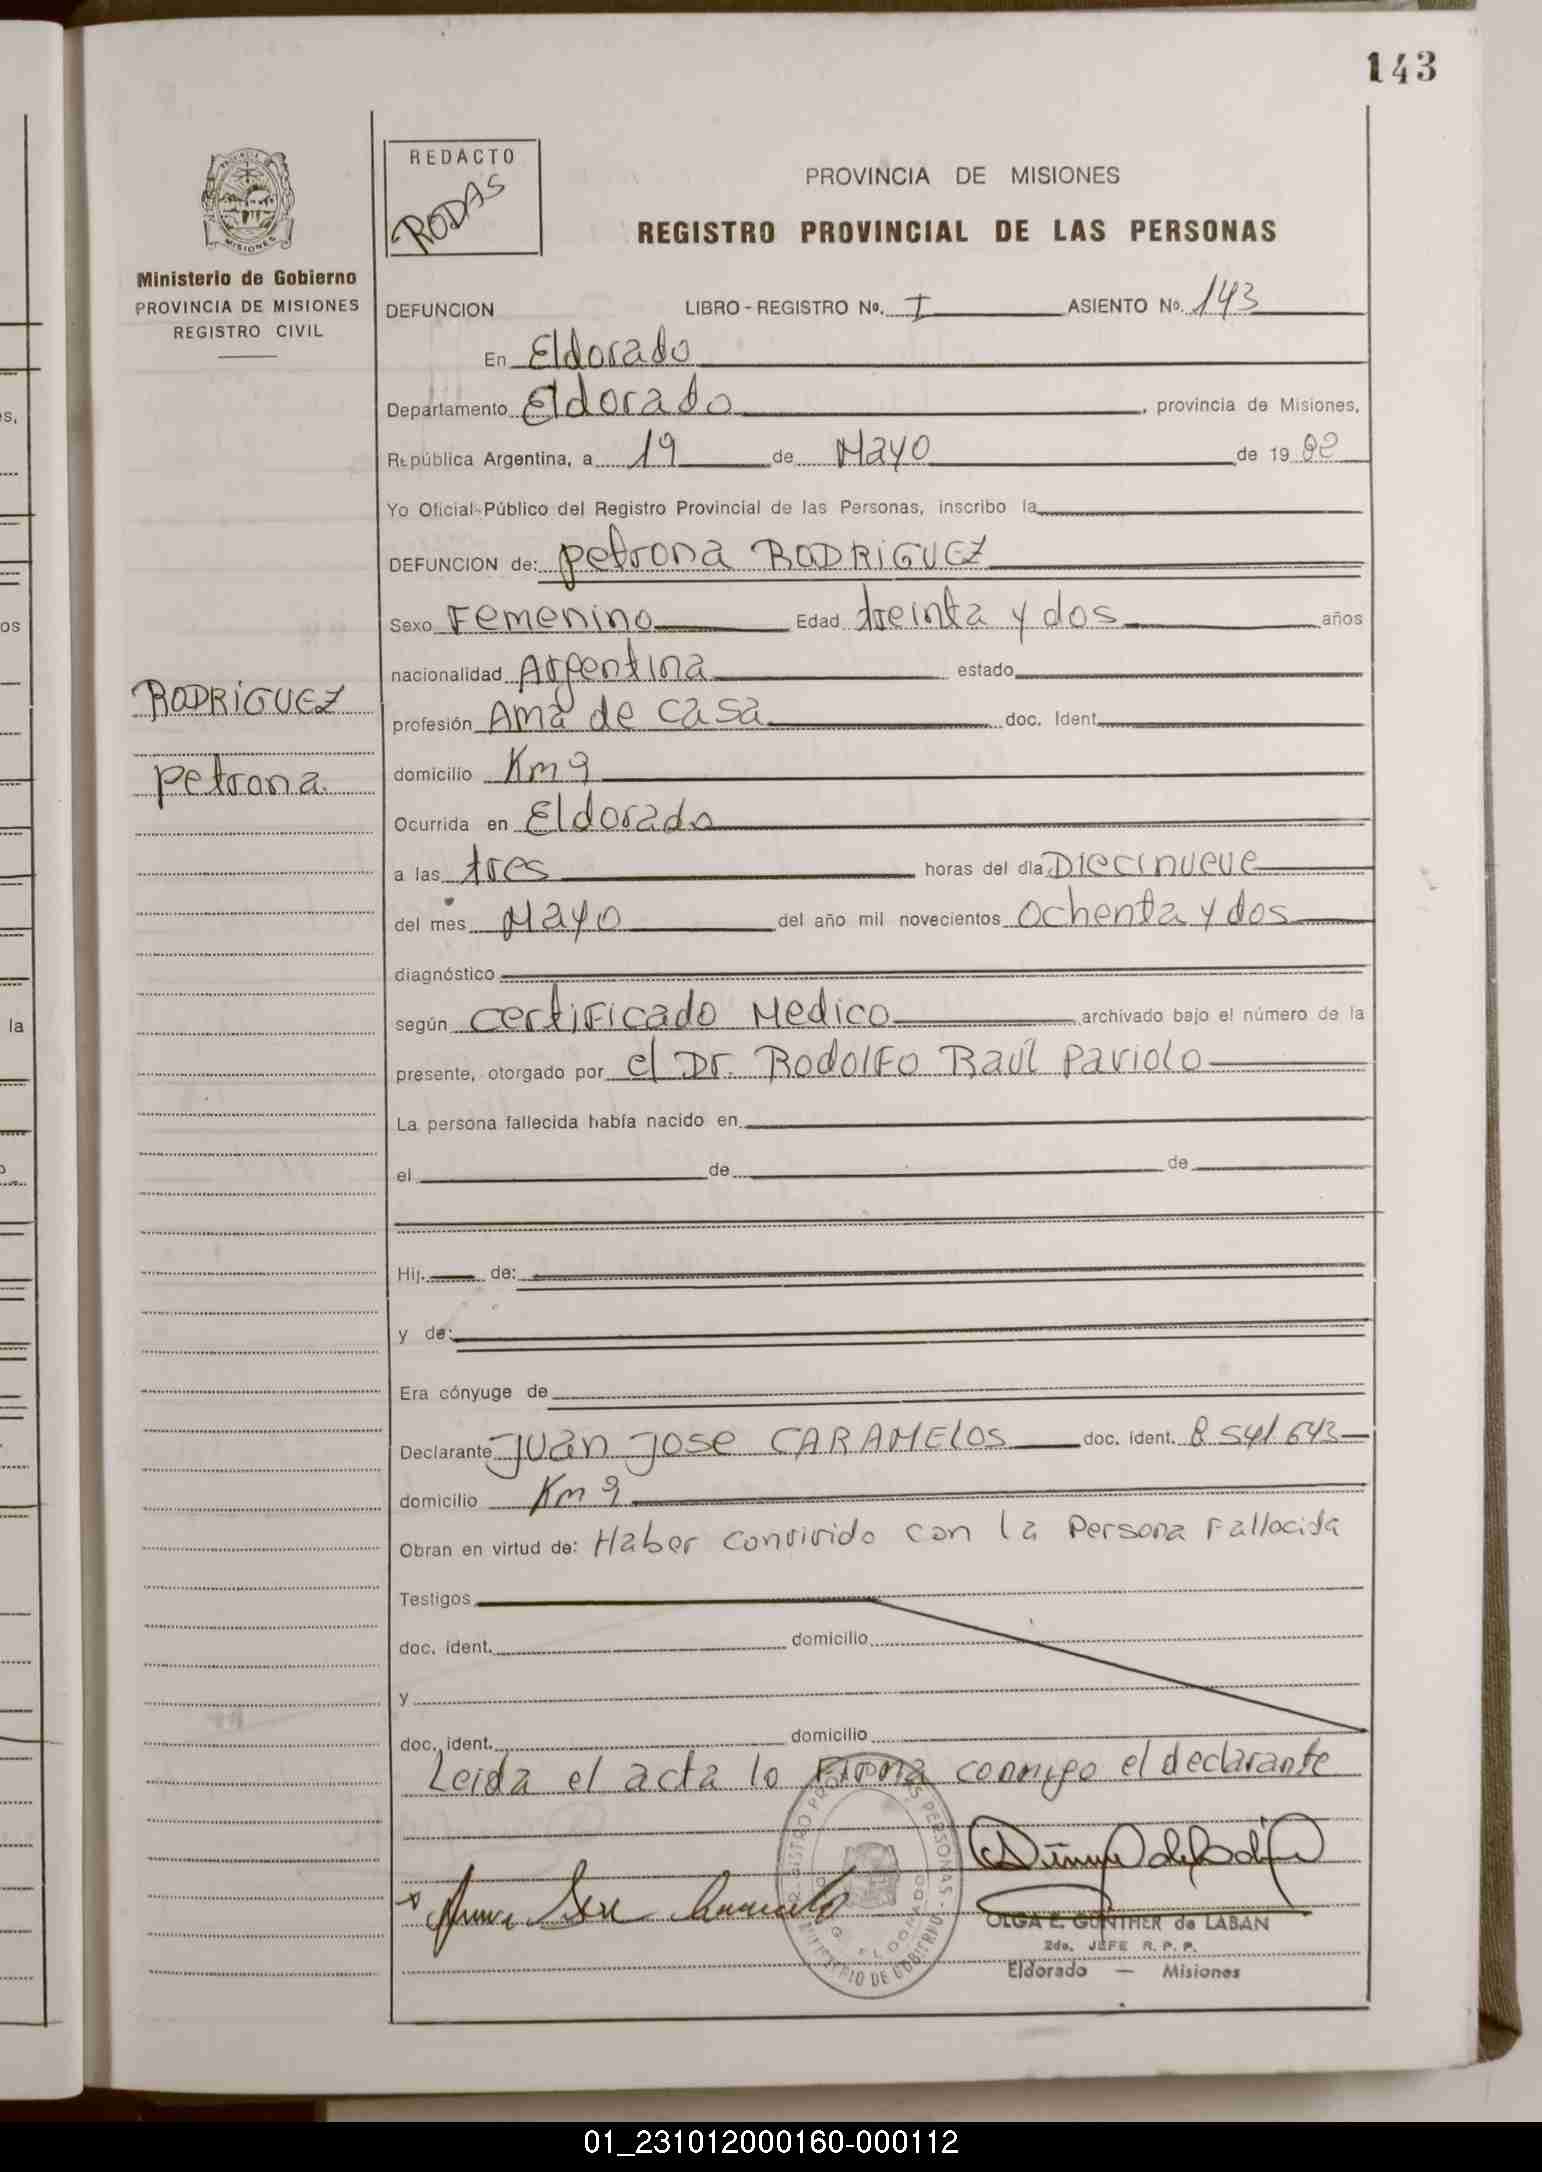 143
REDACTO
RODAS
PROVINCIA DE MISIONES
REGISTRO PROVINCIAL DE LAS PERSONAS
MISIONES
Ministerio de Gobierno
PROVINCIA DE MISIONES
REGISTRO CIVIL
DEFUNCION LIBRO - REGISTRO No. I ASIENTO No. 143
En Eldorado
Departamento Eldorado, provincia de Misiones,
República Argentina, a 19 de Mayo de 19 82
Yo Oficial Público del Registro Provincial de las Personas, inscribo la
DEFUNCION de: petrona RODRIGUEZ
Sexo Femenino Edad treinta y dos años
nacionalidad Argentina estado
RODRIGUEZ
petrona
profesión Ama de casa doc. Ident.
domicilio Km 9
Ocurrida en Eldorado
a las tres horas del día Diecinueve
del mes Mayo del año mil novecientos ochenta y dos
diagnóstico
según certificado Medico archivado bajo el número de la
presente, otorgado por el Dr. Rodolfo Raúl Paviolo
La persona fallecida había nacido en
el de de
Hij. de:
y de:
Era cónyuge de
Declarante Juan Jose CARAMELOS doc. ident. 8 541 643
domicilio Km 9
Obran en virtud de: Haber convivido con la Persona Fallecida
Testigos
doc. ident. domicilio
y
doc. ident. domicilio
Leida el acta lo Firma conmigo el declarante
OLGA E. GUNTHER de LABAN
2do. JEFE R. P. P.
Eldorado — Misiones
01_231012000160-000112